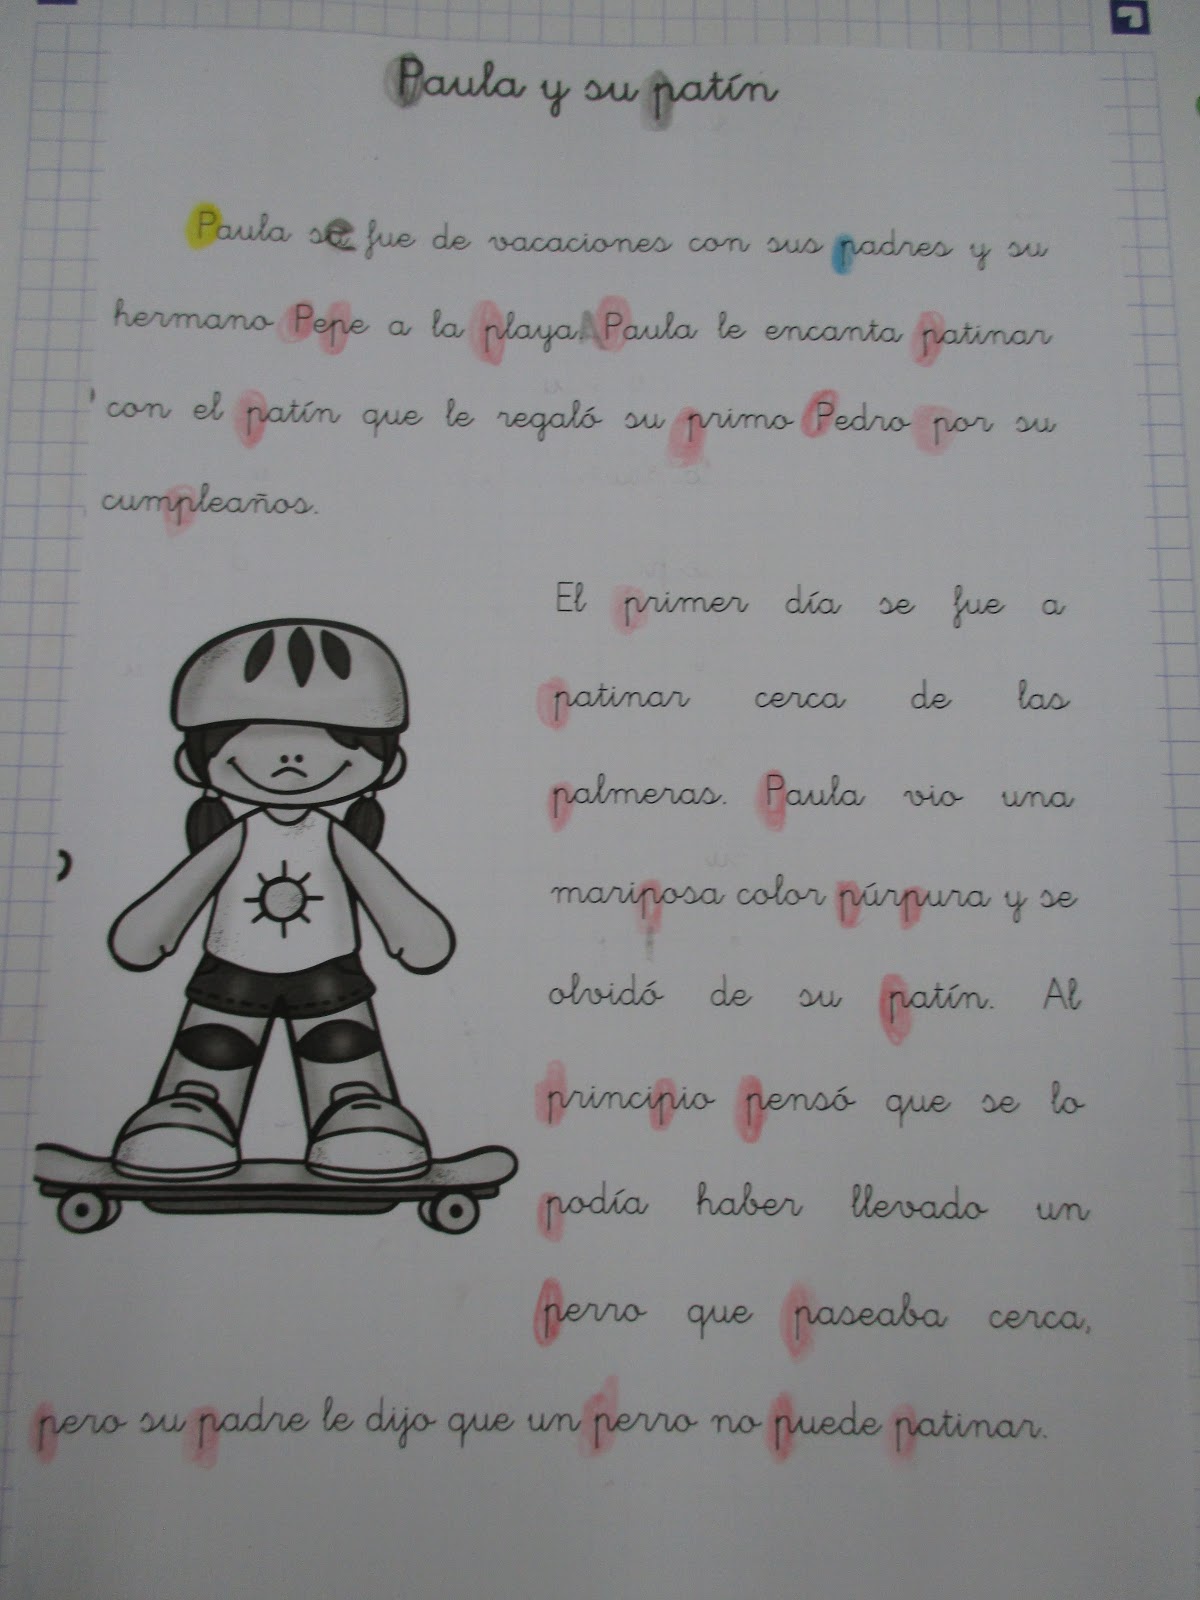 Paula y su patín
Paula se fue de vacaciones con sus padres y su
hermano Pepe a la playa. A Paula le encanta patinar
con el patín que le regaló su primo Pedro por su
cumpleaños.
El primer día se fue a
patinar cerca de las
palmeras. Paula vio una
mariposa color púrpura y se
olvidó de su patín. Al
principio pensó que se lo
podía haber llevado un
perro que paseaba cerca,
pero su padre le dijo que un perro no puede patinar.